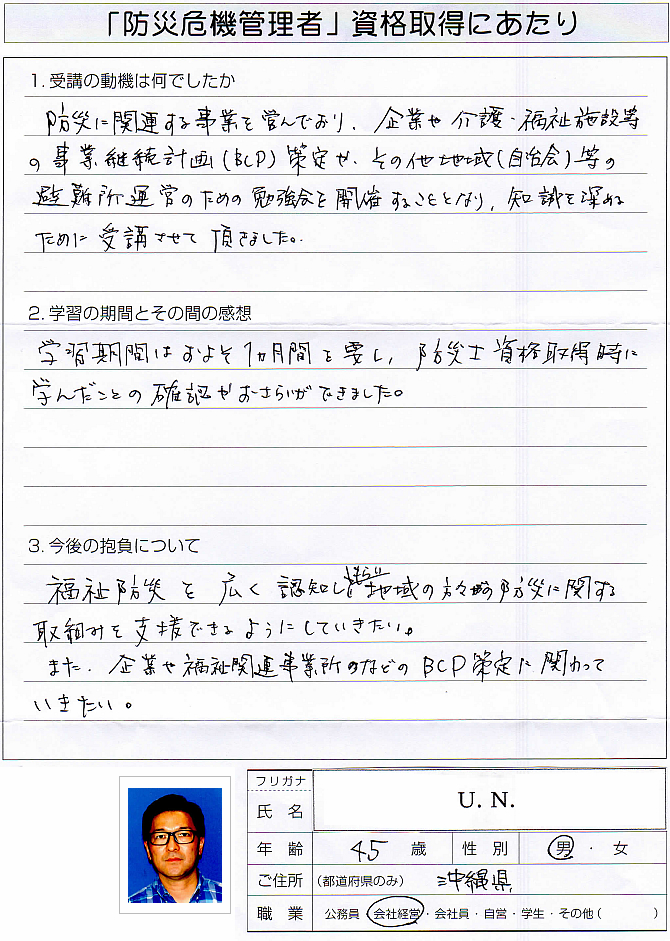 「防災危機管理者」資格取得にあたり
1. 受講の動機は何でしたか
防災に関連する事業を営んでおり、企業や介護・福祉施設等
の事業継続計画(BCP)策定や、その他地域(自治会)等の
避難所運営のための勉強会を開催することとなり、知識を深める
ために受講させて頂きました。
2. 学習の期間とその間の感想
学習期間はおよそ1ヵ月間を要し、防災士資格取得時に
学んだことの確認やおさらいができました。
3. 今後の抱負について
福祉防災を広く認知してもらい地域の方々の防災に関する
取組みを支援できるようにしていきたい。
また、企業や福祉関連事業所などのBCP策定に関わって
いきたい。
フリガナ
氏名 U. N.
年齢 45 歳 性別 男・女
ご住所 (都道府県のみ) 沖縄県
職業 公務員・会社経営・会社員・自営・学生・その他( )